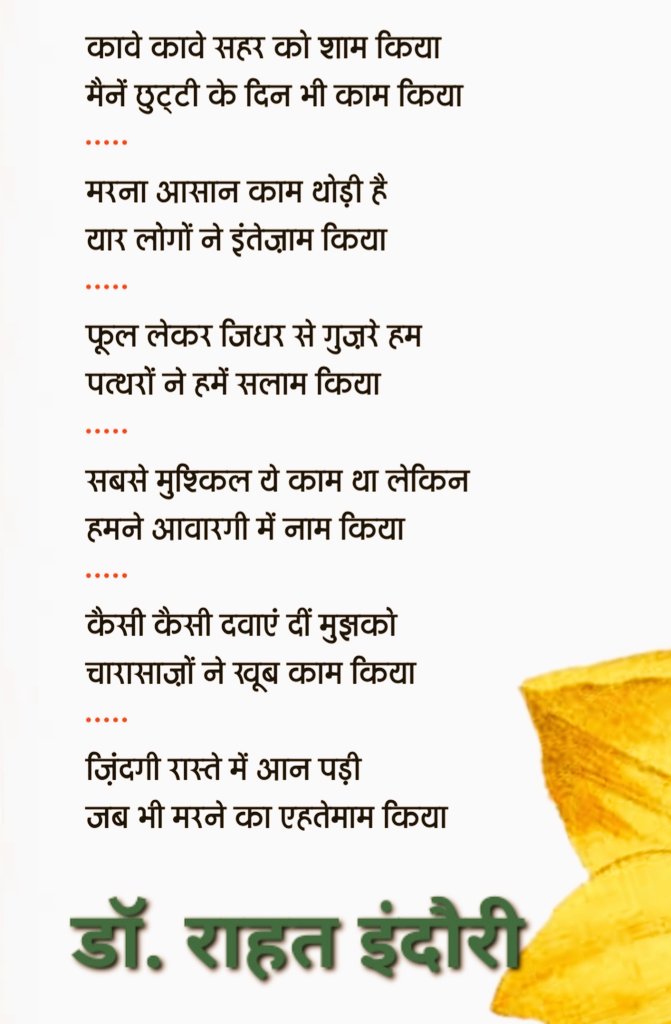 कावे कावे सहर को शाम किया
मैनें छुट्टी के दिन भी काम किया
.....
मरना आसान काम थोड़ी है
यार लोगों ने इंतेज़ाम किया
.....
फूल लेकर जिधर से गुज़रे हम
पत्थरों ने हमें सलाम किया
.....
सबसे मुश्किल ये काम था लेकिन
हमने आवारगी में नाम किया
.....
कैसी कैसी दवाएं दीं मुझको
चारासाज़ों ने खूब काम किया
.....
ज़िंदगी रास्ते में आन पड़ी
जब भी मरने का एहतेमाम किया
डॉ. राहत इंदौरी